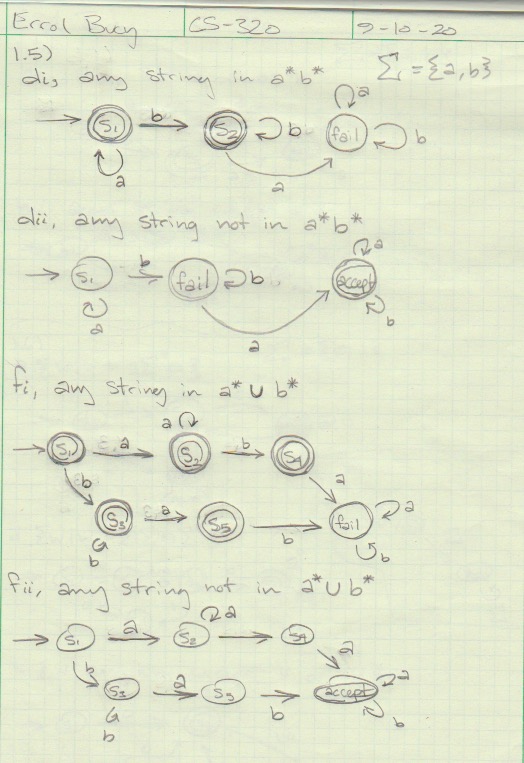 Errol Bucy CS-320 9-10-20
1.5)
di, any string in a*b* Σ={a,b}
a
b
S1 S2 b fail b
a
a
dii, any string not in a*b*
a
b
S1 fail b accept
a b
a
fi, any string in a* ∪ b*
a
S1 a S2 b S4
b a
S3 a S5 fail a
b b b
fii, any string not in a* ∪ b*
a
S1 a S2 S4
b a
S3 a S5 accept a
b b b